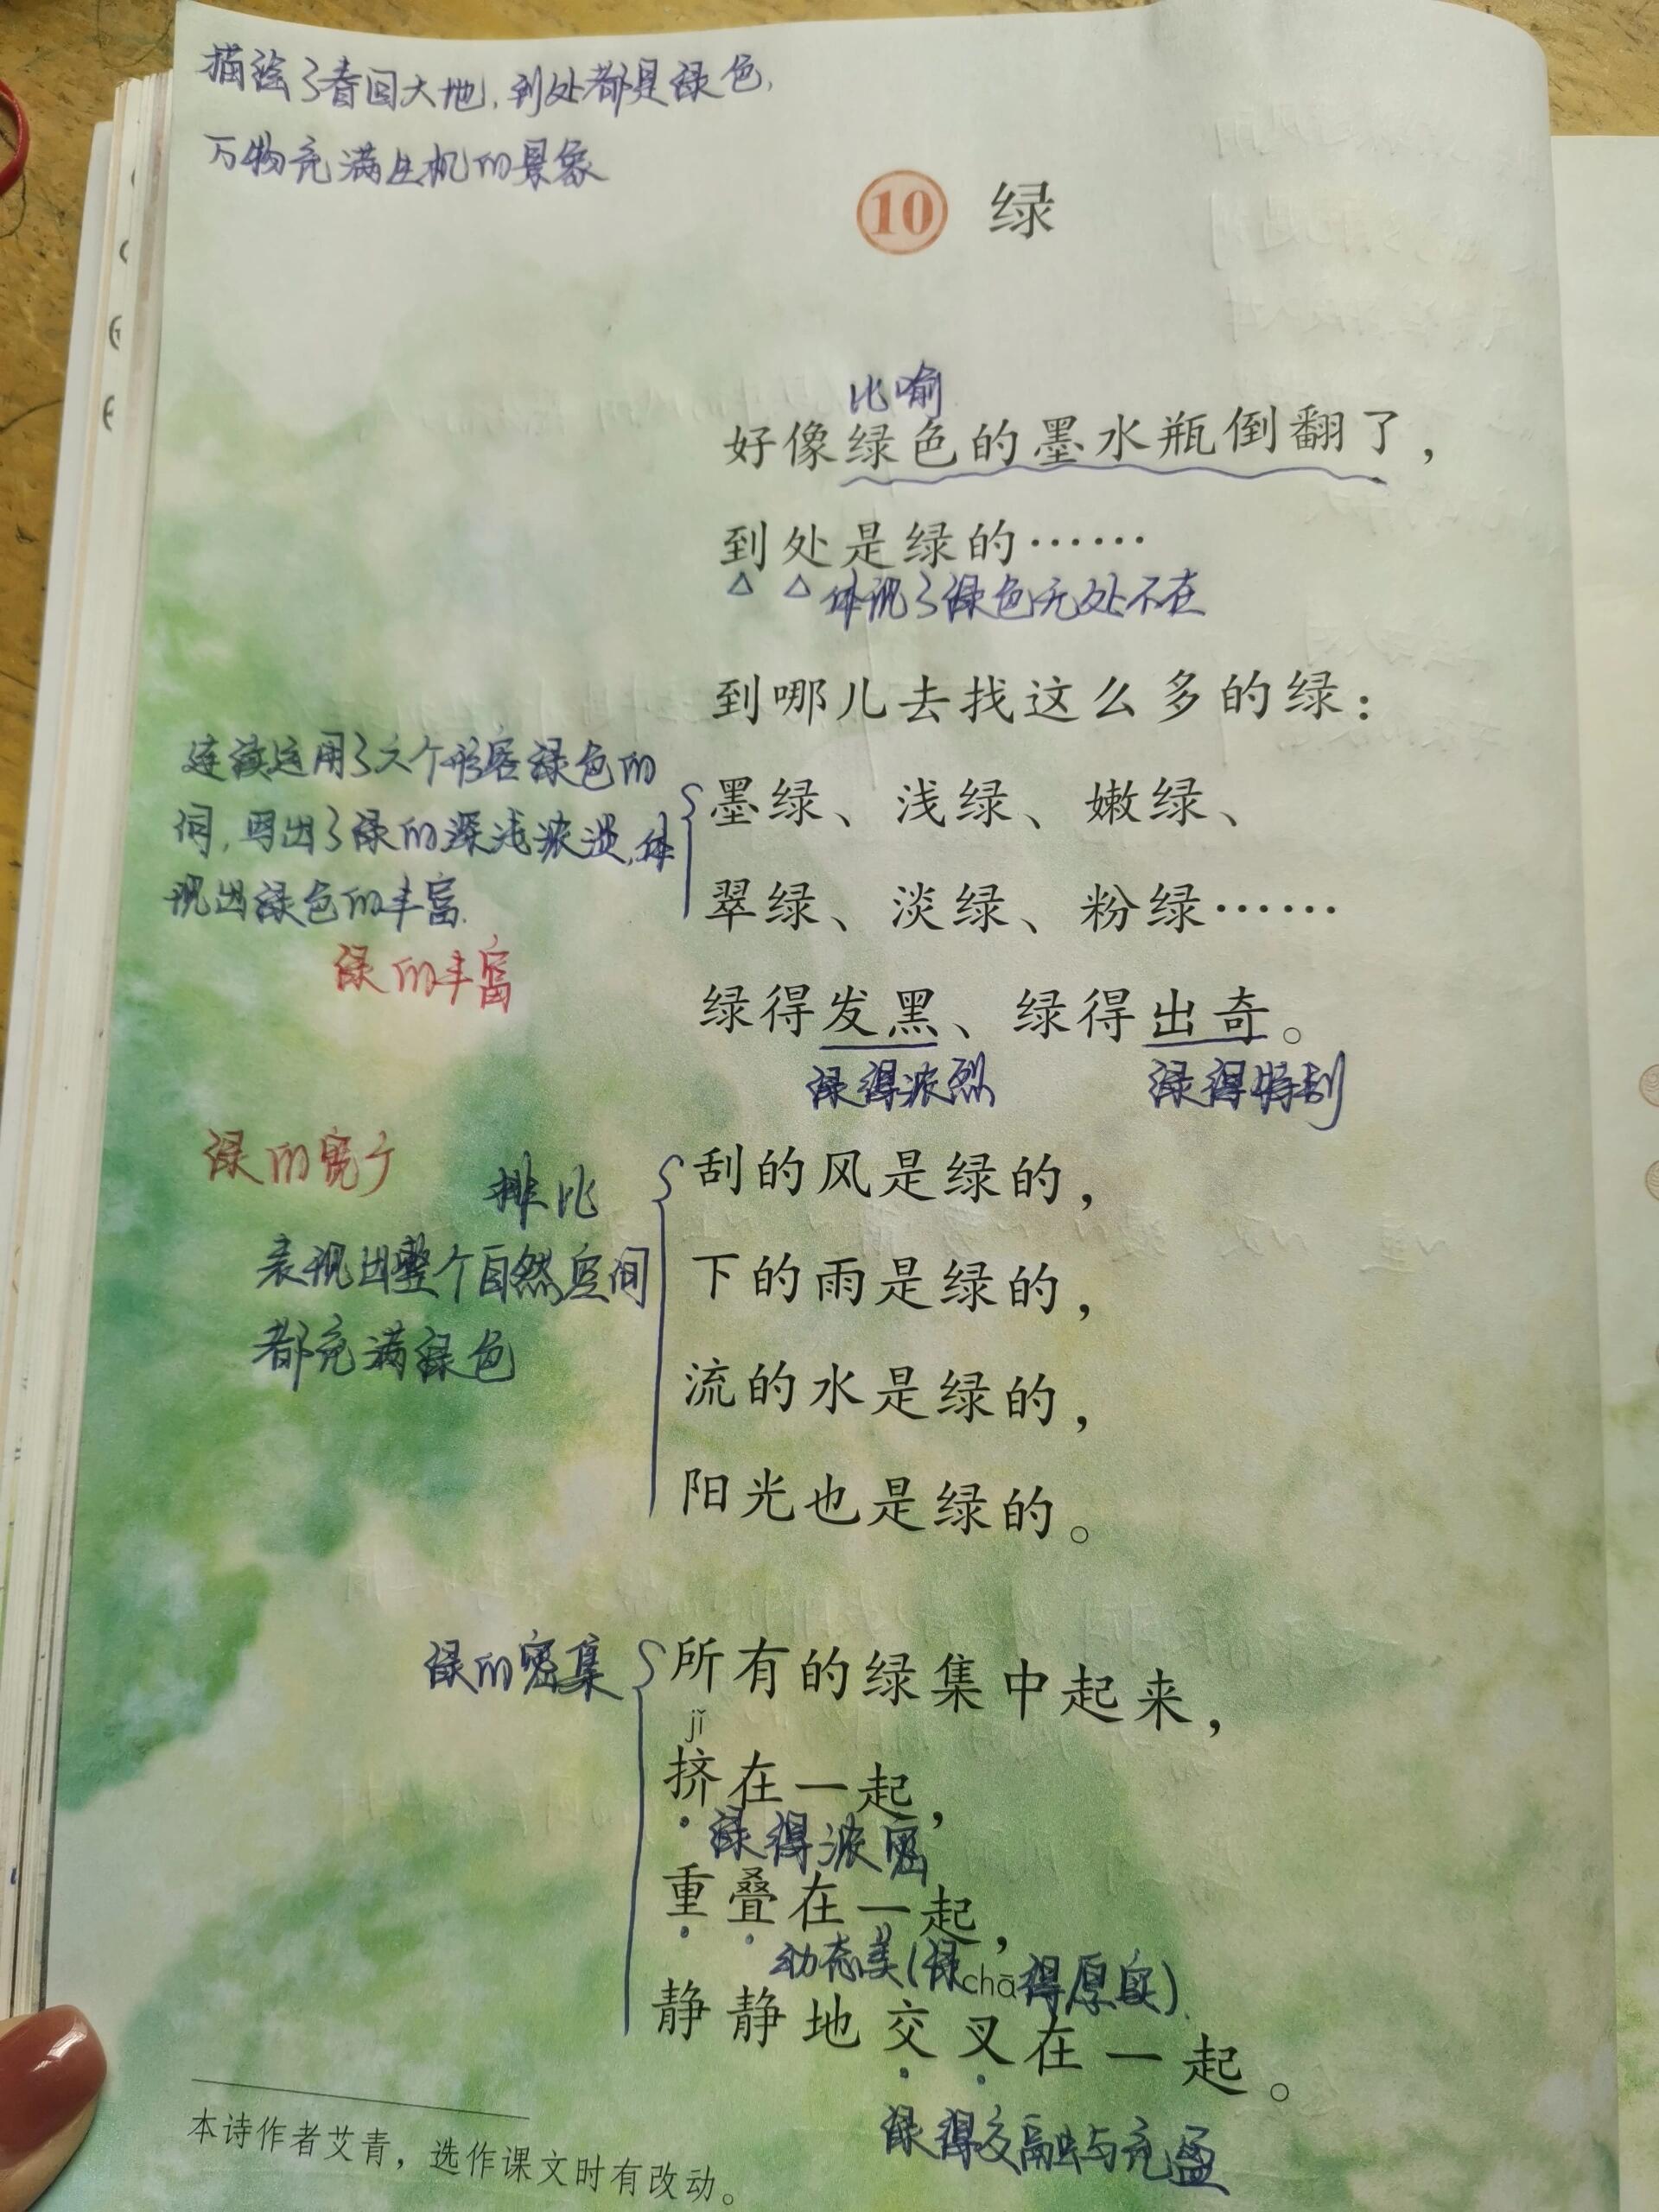 描绘了春回大地,到处都是绿色,
万物充满生机的景象
10 绿
比喻
好像绿色的墨水瓶倒翻了，
到处是绿的……
体现了绿色无处不在
到哪儿去找这么多的绿：
连续运用了六个形容绿色的
词,写出了绿的深浅浓淡,体
现出绿色的丰富.
绿的丰富
墨绿、浅绿、嫩绿、
翠绿、淡绿、粉绿……
绿得发黑、绿得出奇。
绿得浓烈 绿得特别
绿的宽广
排比
表现出整个自然空间
都充满绿色
刮的风是绿的，
下的雨是绿的，
流的水是绿的，
阳光也是绿的。
绿的密集
所有的绿集中起来，
jǐ
挤在一起，
绿得浓密
重叠在一起，
动态美(绿得厚实).
chā
静静地交叉在一起。
绿得交融与充盈
本诗作者艾青，选作课文时有改动。